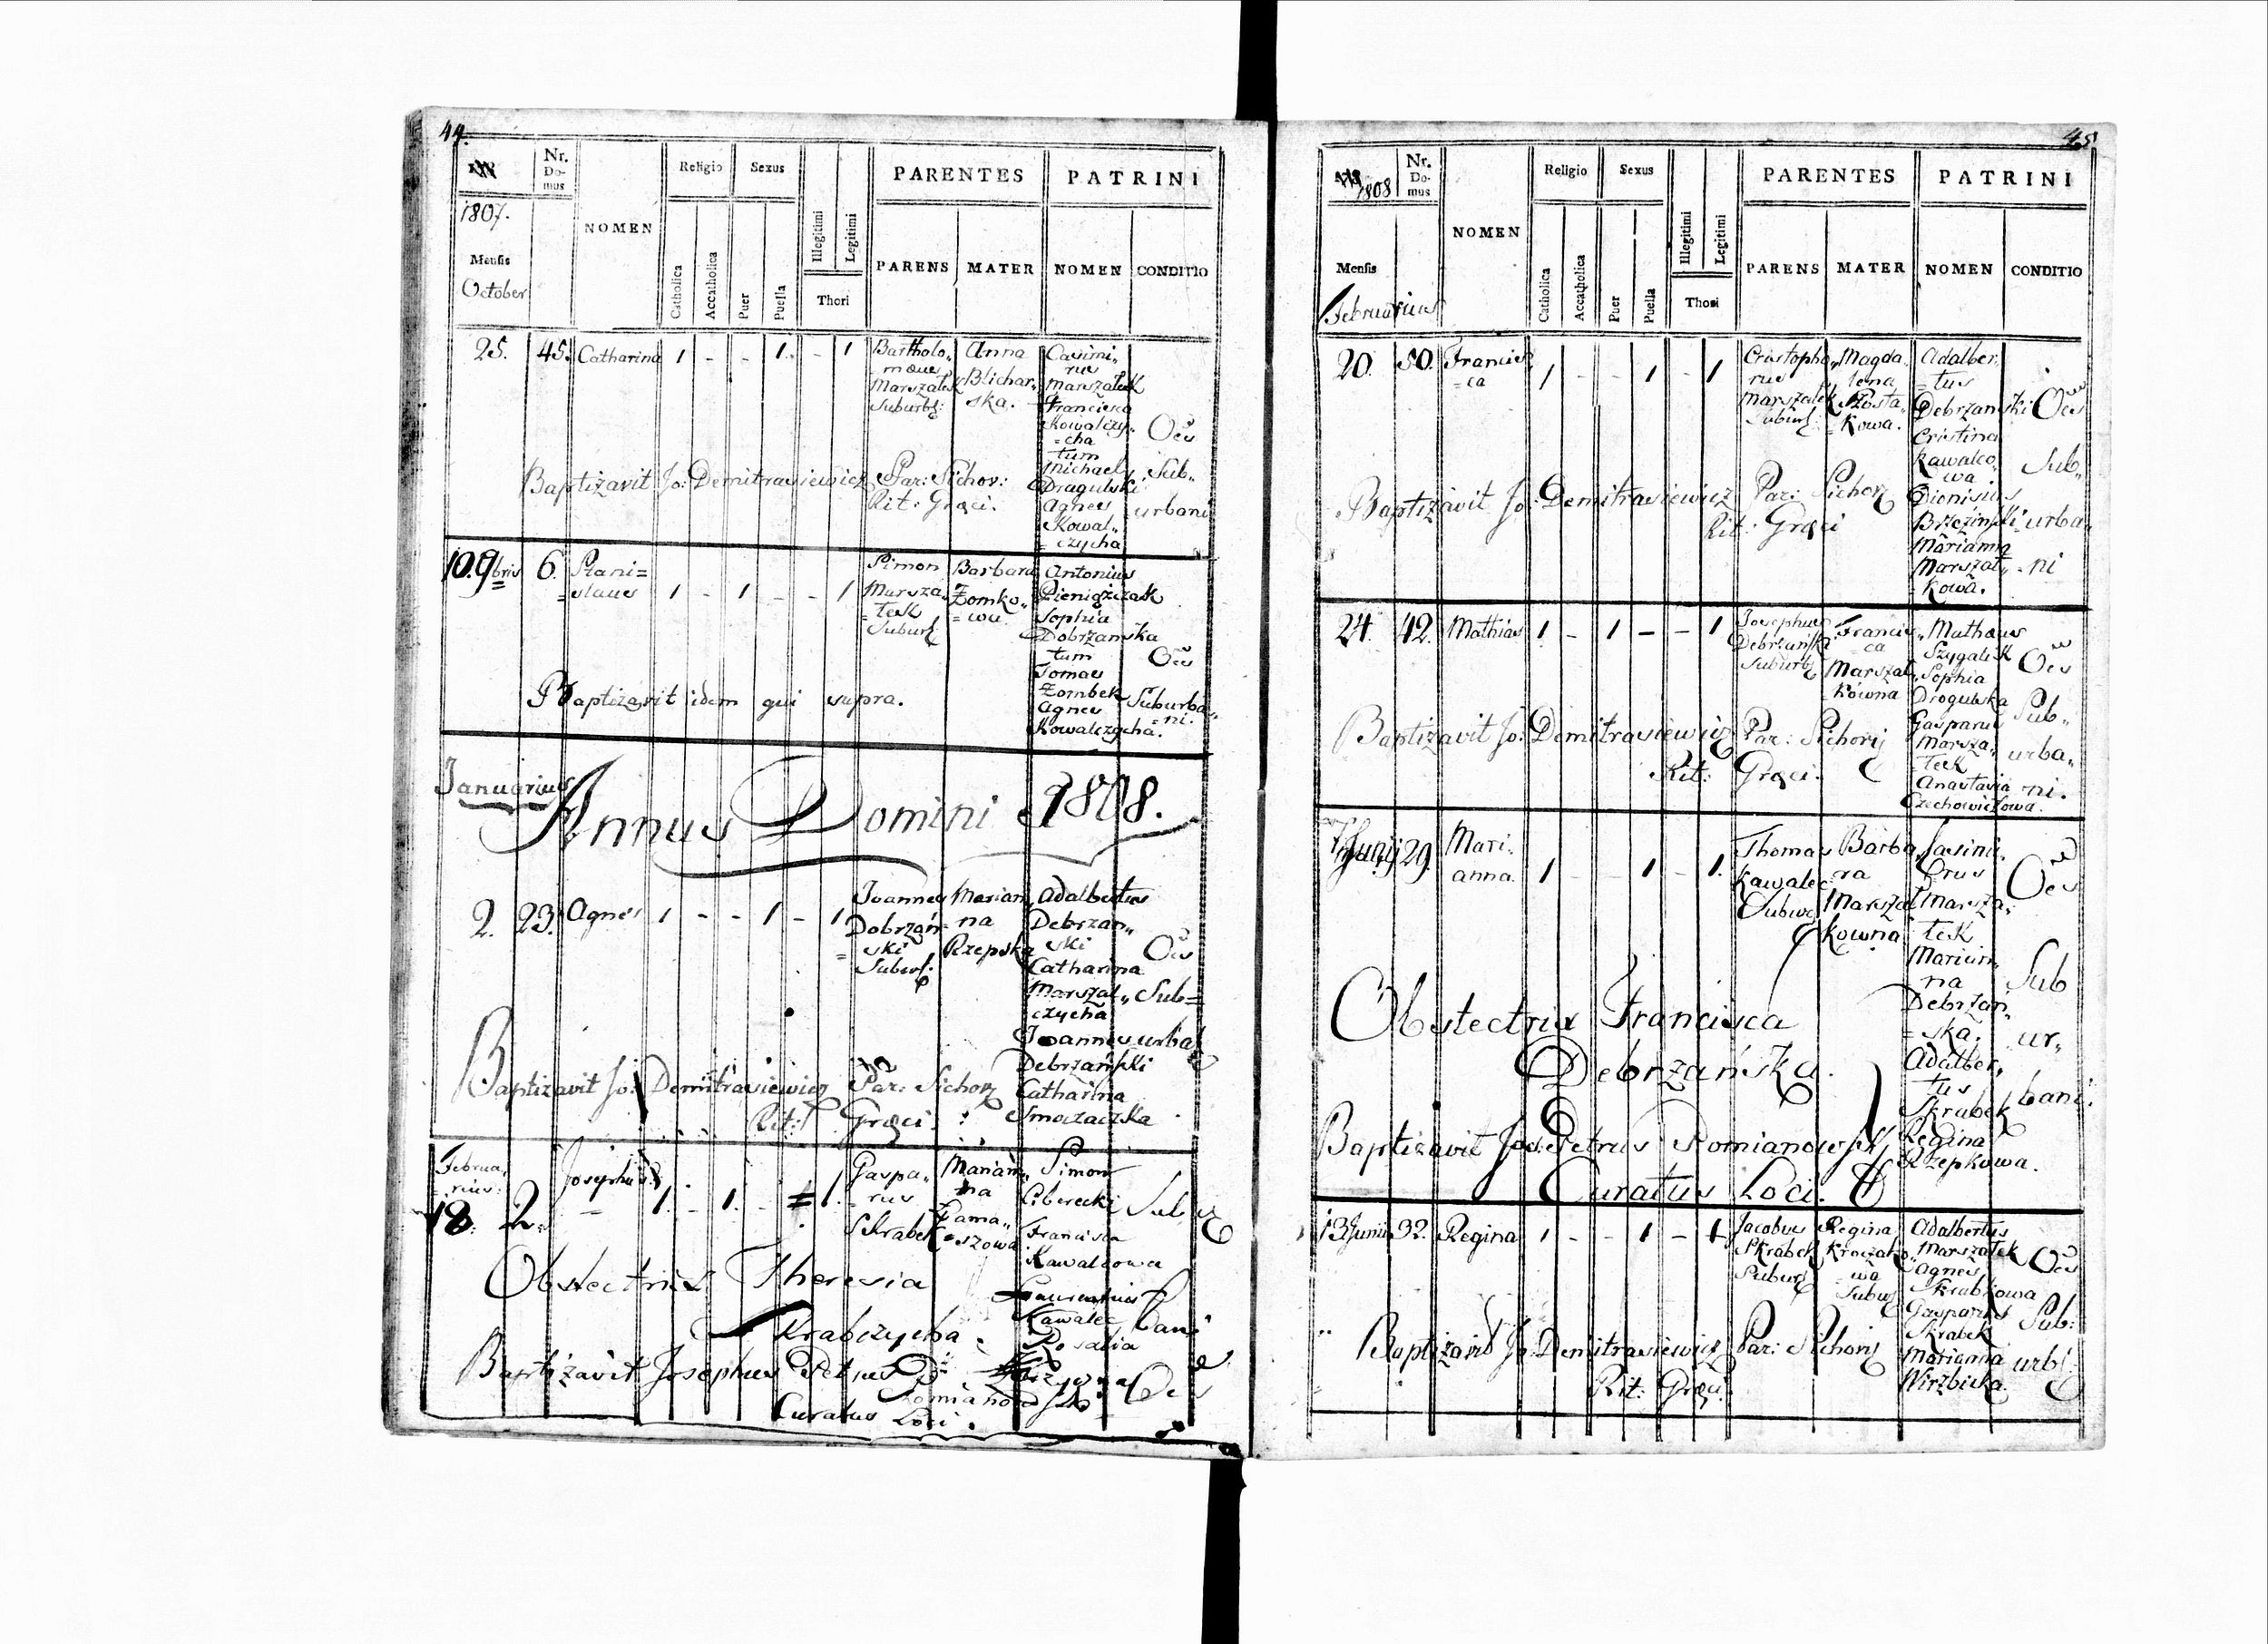 44.
Nr. Domus
Religio
Sexus
PARENTES
PATRINI
1807.
NOMEN
Illegitimi
Legitimi
Mensis
October
Catholica
Accatholica
Puer
Puella
Thori
PARENS
MATER
NOMEN
CONDITIO
25. 45. Catharina 1 - - 1. - 1
Bartholo„
mæus
Marszałek
Suburb:
Anna
Blichar„
ska.
Casimi„
rus
Marszałek
Francisca
Kowalczy„
=cha
tum
Michael
Dragulski
Agnes
Kowal„
=czycha
Oēs
Sub„
urbani
Baptizavit Jo: Demitrasiewicz Par: Sichov:
Rit: Græci.
10. 9bris 6. Stani=
=slaus 1 - 1 - - 1
Simon
Marsza„
=łek
Suburb
Barbara
Zomko„
=wa
Antonius
Pieniążczak
Sophia
Dobrzanska
tum
Tomas
Zombek
Agnes
Kowalczycha.
Oēs
Suburba„
=ni.
Baptizavit idem qui supra.
Januarius
Annus Domini 1808.
2. 23. Agnes 1 - - 1 - 1
Joannes
Dobrzań
=ski
Suburb:
Marian„
na
Rzepska
Adalbertus
Debrzan„
ski
Catharina
Marszał„
czycha
Joannes
Debrzański
Catharina
Smoczaczka
Oēs
Sub=
urba
Baptizavit Jo: Demitrasiewicz Par: Sichov
Rit: Græci:
Februa„
rius:
18. 2. Josephus 1. - 1. - = 1.
Gaspa„
rus
Skrabek
Marian„
na
Simon
Ciberecki
Francisca
Kawalcowa
Laurentius
Kawalec
Rosalia
Sub
bani
Oēs
Obstectrix Theresia
Skrabczycha.
Baptizavit Josephus Petrus
Romianowski
Curatus Loci.
45
1808
Nr. Domus
Religio
Sexus
PARENTES
PATRINI
NOMEN
Illegitimi
Legitimi
Mensis
Februarius
Catholica
Accatholica
Puer
Puella
Thori
PARENS
MATER
NOMEN
CONDITIO
20. 50. Francis
=ca 1 - - 1 - 1
Cristopho„
rus
Marszałek
Suburb:
Magda„
lena
=kowa.
Adalber„
=tus
Debrzański
Cristina
Kawalco„
wa
Dionisius
Brzeziński
Marianna
Marszał„
kowa.
Oēs
Sub„
urba„
=ni
Baptizavit Jo: Demitrasiewicz Par: Sichov
Rit: Græci
24. 42. Mathias 1 - 1 - - 1
Josephus
Debrzański
Suburb
Francis„
ca
Marszał„
kowna
Mathæus
Szygalik
Sophia
Drogulska
Gasparus
Marsza„
=łek
Anastasia
Czechowiczowa.
Oēs
Sub„
urba„
ni.
Baptizavit Jo: Demitrasiewicz Par: Sichov
Rit: Græci.
Junij 29. Mari„
anna. 1 - - 1 - 1.
Thomas
Kawalec
Suburb
Barba„
ra
Marszał
kowna
Casimi„
rus
Marsza„
łek
Marian„
na
Debrzań„
=ska.
Adalber„
tus
Skrabek
Regina
Rzepkowa.
Oēs
Sub
ur„
bani.
Obstectrix Francisca
Debrzańska.
Baptizavit Jos: Petrus Romianowski
Curatus Loci.
13 Junii 32. Regina 1 - - 1 - 1
Jacobus
Skrabek
Suburb
Regina
Kroczako„
wa
Suburb
Adalbertus
Marszałek
Agnes
Skrabkowa
Gasparus
Skrabek
Marianna
Wirzbicka.
Oēs
Sub:
urb:
Baptizavit Jo: Demitrasiewicz Par: Sichov
Rit: Græci.